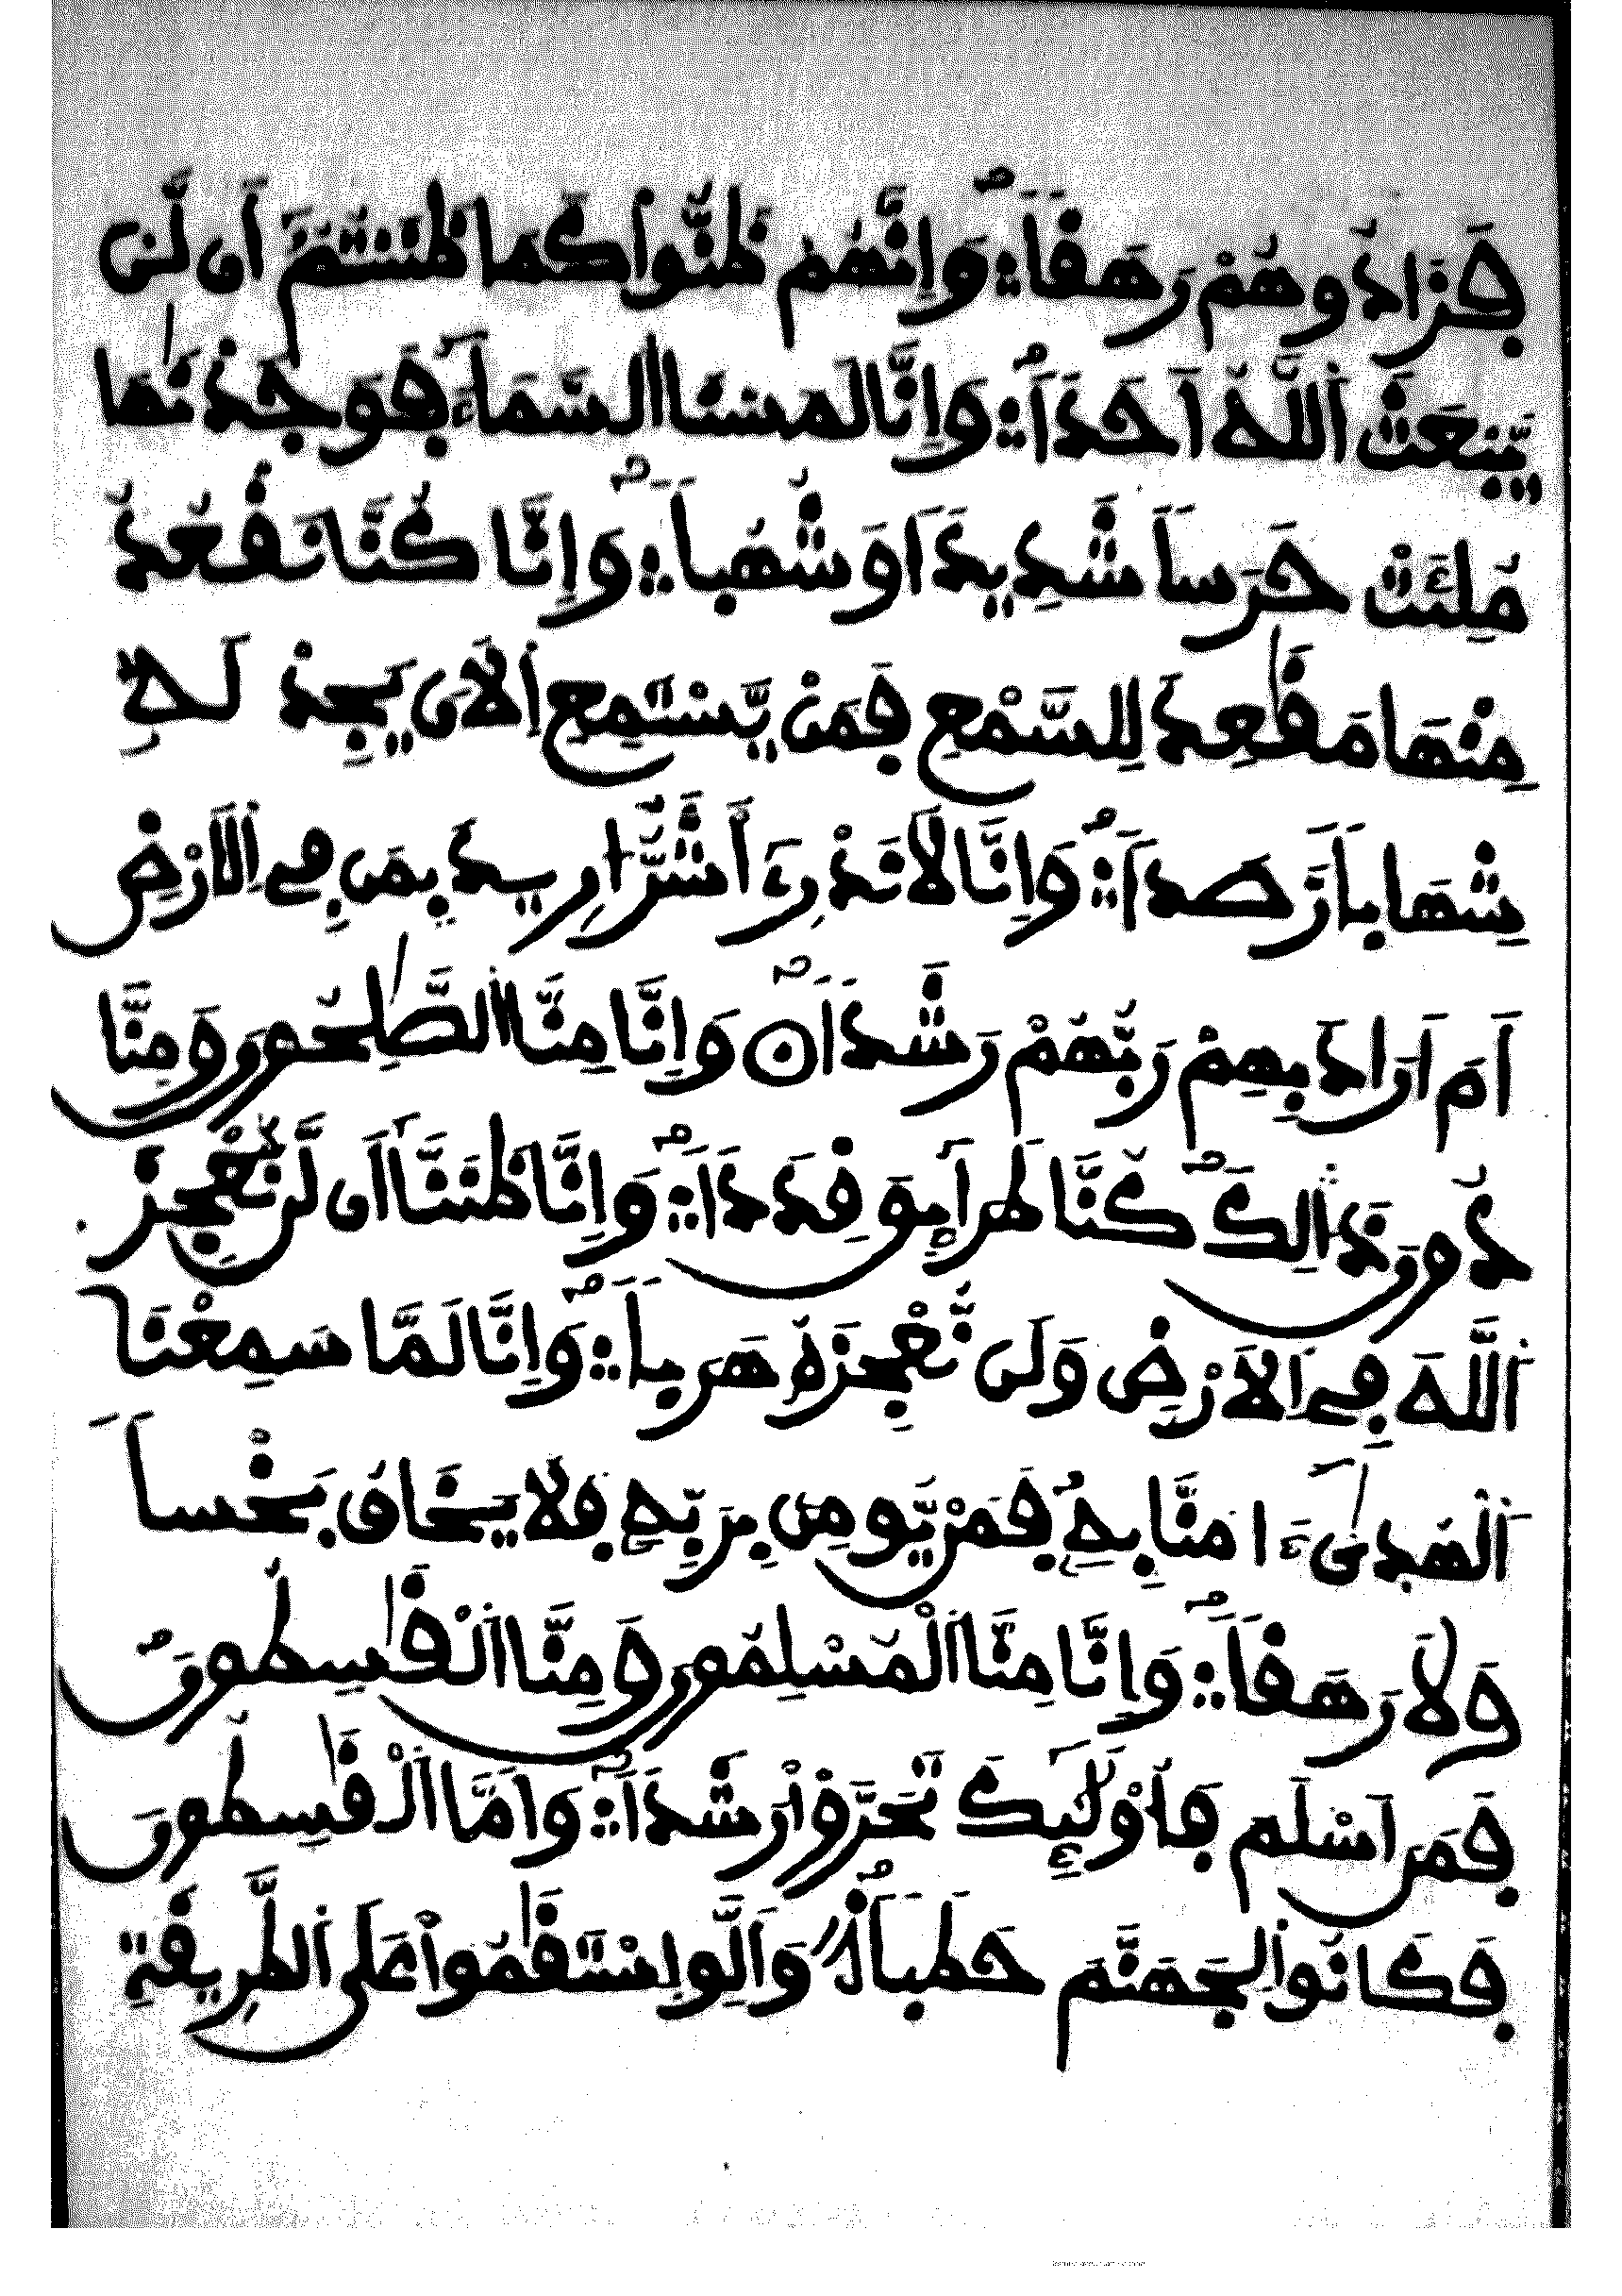 فَزَادُوهُمْ رَهَقاً وَإِنَّهُمْ ظَنُّوا كَمَا ظَنَنتُمُ أَن لَّنْ
يَّبْعَثَ اَللَّهُ أَحَداً وَإِنَّا لَمَسْنَا اَلسَّمَآءَ فَوَجَدْنَٰهَا
مُلِئَتْ حَرَساً شَدِيداً وَشُهُباً وَإِنَّا كُنَّا نَقْعُدُ
مِنْهَا مَقَٰعِدَ لِلسَّمْعِ فَمَنْ يَّسْتَمِعِ اِلَانَ يَجِدْ لَهُ
شِهَاباً رَّصَداً وَإِنَّا لَا نَدْرِے أَشَرٌّ ارِيدَ بِمَن فِے اِلَارْضِ
أَمَ اَرَادَ بِهِمْ رَبُّهُمْ رَشَداً وَإِنَّا مِنَّا اَلصَّٰلِحُونَ وَمِنَّا
دُونَ ذَٰلِكَ كُنَّا طَرَآئِقَ قِدَداً وَإِنَّا ظَنَنَّا أَن لَّن نُّعْجِزَ
اَللَّهَ فِے اِلَارْضِ وَلَن نُّعْجِزَهُ هَرَباً وَإِنَّا لَمَّا سَمِعْنَا
اَلْهُدَىٰ ءَامَنَّا بِهِ فَمَنْ يُّومِنْ بِرَبِّهِ فَلَا يَخَافُ بَخْساً
وَلَا رَهَقاً وَإِنَّا مِنَّا اَلْمُسْلِمُونَ وَمِنَّا اَلْقَٰسِطُونَ
فَمَنَ اَسْلَمَ فَأُوْلَٰٓئِكَ تَحَرَّوْا رَشَداً وَأَمَّا اَلْقَٰسِطُونَ
فَكَانُوا لِجَهَنَّمَ حَطَباً وَأَن لَّوِ اِسْتَقَٰمُوا عَلَى اَلطَّرِيقَةِ